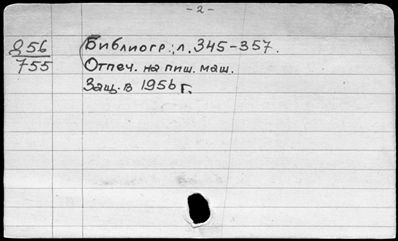 - 2 -
856
755
Библиогр.: л. 345-357.
Отпеч. на пиш. маш.
Защ. в 1956 г.